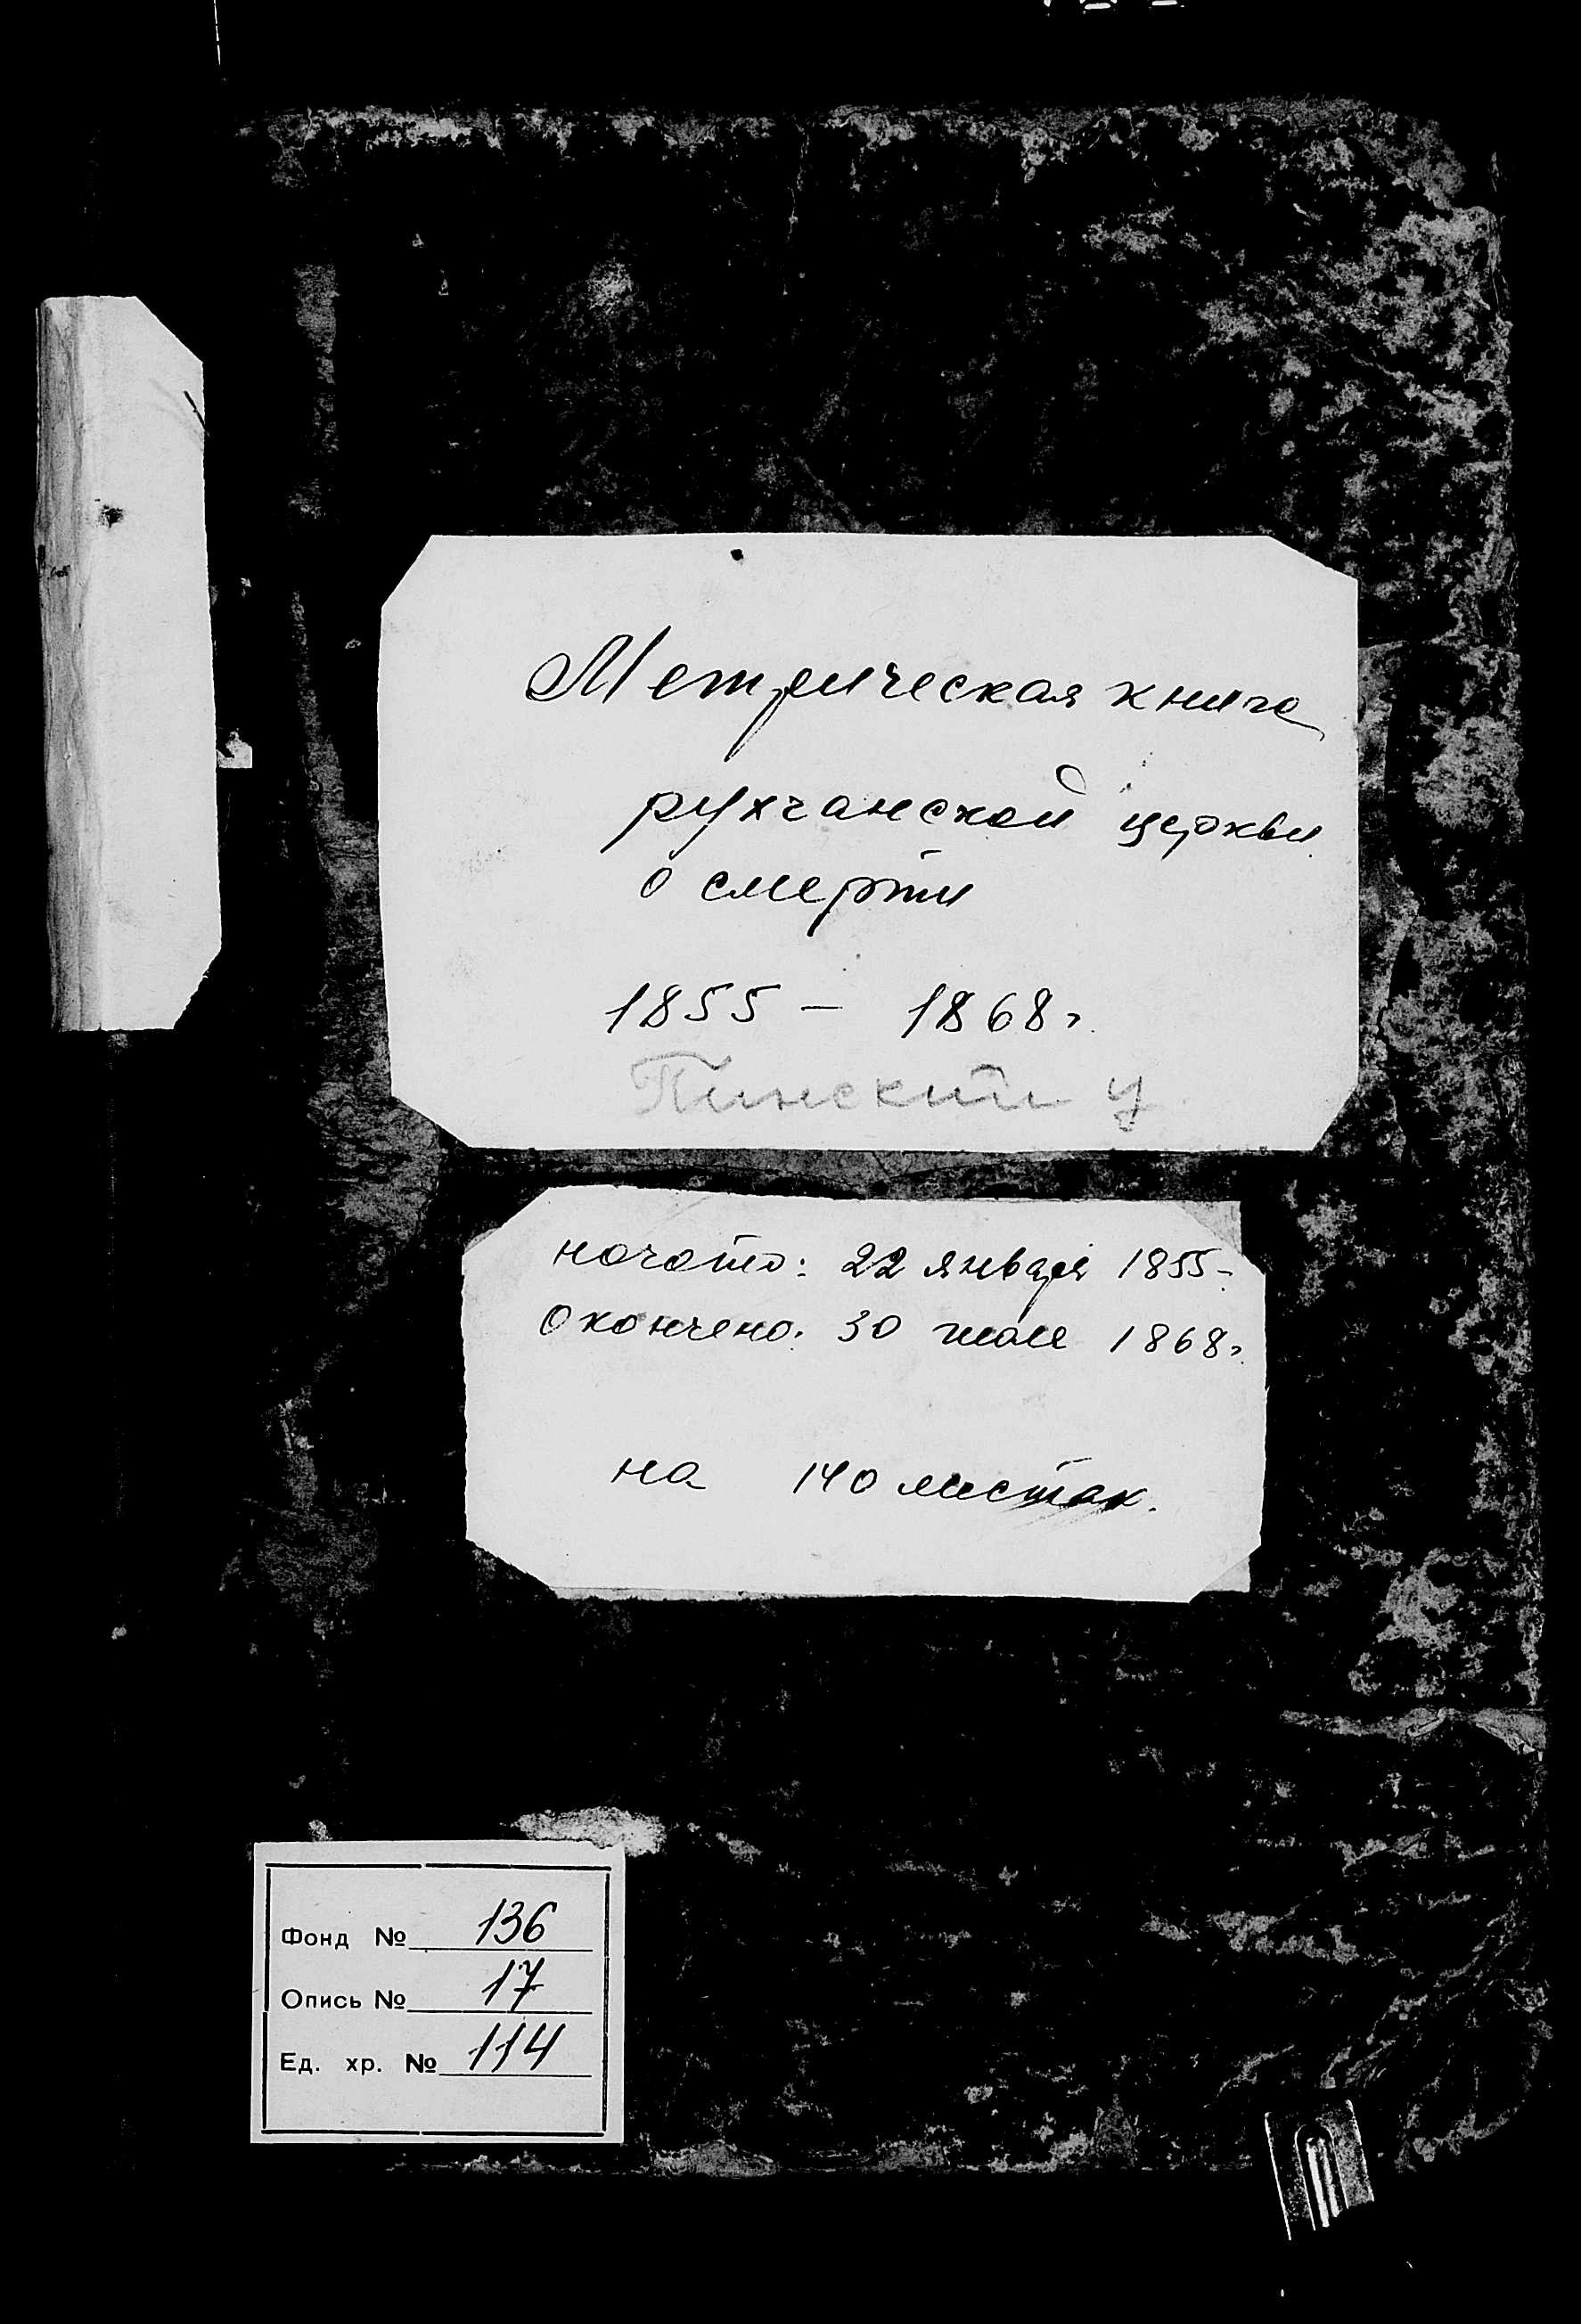 Метрическая книга
рухчанской церкви
о смерти
1855 – 1868 г.
Пинский у
начато: 22 января 1855 г.
Окончено: 30 июля 1868 г.
на 140 листах.
Фонд № 136
Опись № 17
Ед. хр. № 114